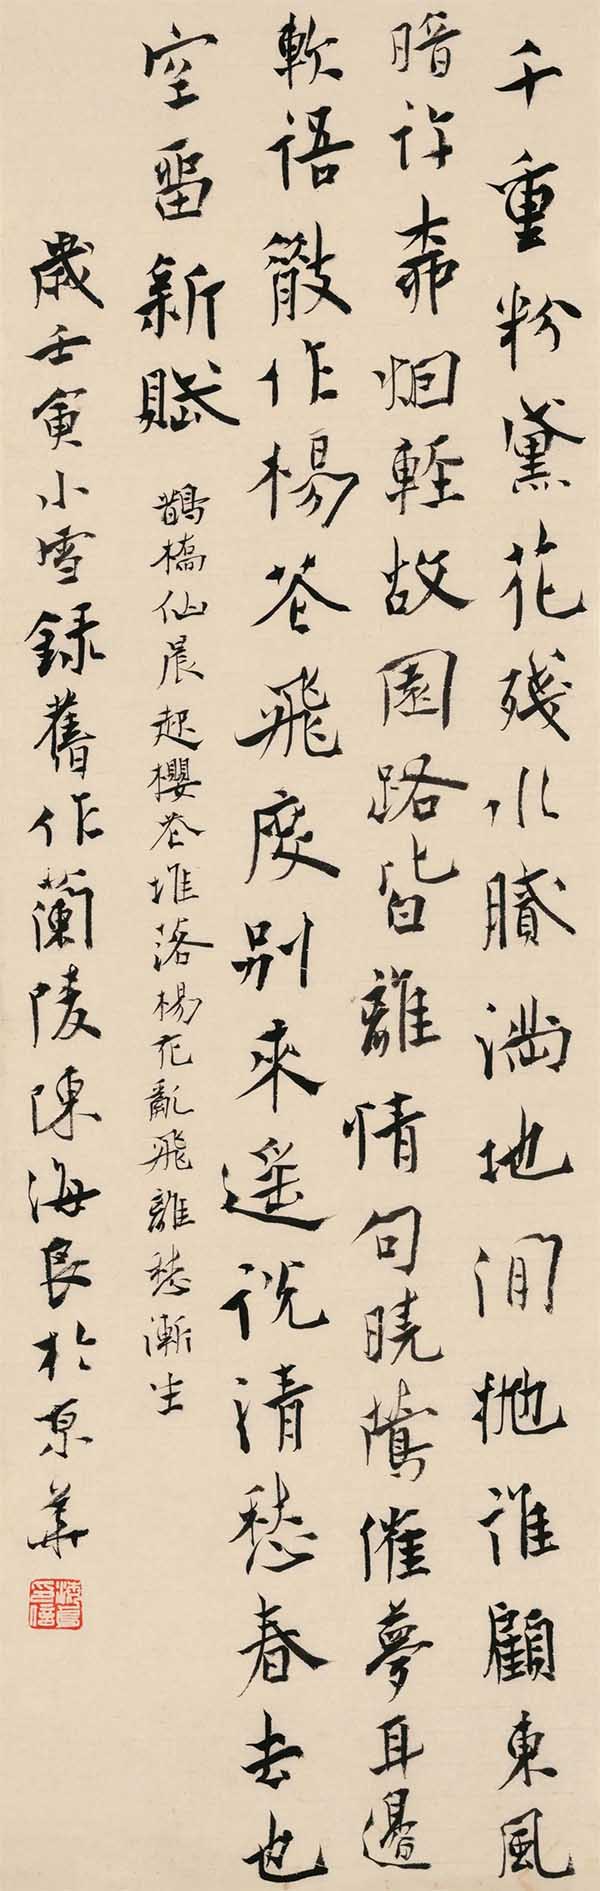 千重粉黛花殘水膩滿地閒拋誰顧東風
暗許烟輕故園路皆離情句曉鶯催夢耳邊
軟語散作楊花飛度別來遙說清愁春去也
空留新賦
鵲橋仙晨起櫻花堆落楊花亂飛離愁漸生
歲壬寅小雪錄舊作蘭陵陳海良於京華
海良印信